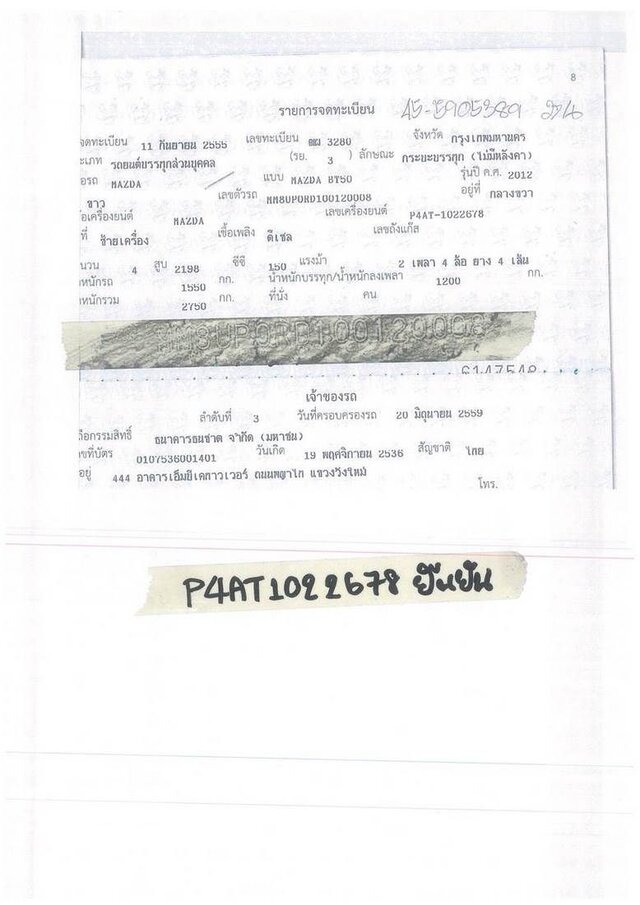 8
รายการจดทะเบียน 45-5905389
จดทะเบียน 11 กันยายน 2555 เลขทะเบียน 3280 จังหวัด กรุงเทพมหานคร
ระเภท รถยนต์บรรทุกส่วนบุคคล (รย. 3 ) ลักษณะ กระบะบรรทุก (ไม่มีหลังคา)
อรถ MAZDA แบบ MAZDA BT50 รุ่นปี ค.ศ. 2012
ขาว เลขตัวรถ MM8UP0RD100120008 อยู่ที่ กลางขวา
อเครื่องยนต์ MAZDA เลขเครื่องยนต์ P4AT-1022678
ที่ ซ้ายเครื่อง เชื้อเพลิง ดีเซล เลขถังแก๊ส
นวน 4 สูบ 2198 ซีซี 150 แรงม้า 2 เพลา 4 ล้อ ยาง 4 เส้น
หนักรถ 1550 กก. น้ำหนักบรรทุก/น้ำหนักลงเพลา 1200 กก.
หนักรวม 2750 กก. ที่นั่ง คน
6147548
เจ้าของรถ
ลำดับที่ 3 วันที่ครอบครองรถ 20 มิถุนายน 2559
ถือกรรมสิทธิ์ ธนาคารธนชาต จำกัด (มหาชน)
ขที่บัตร 0107536001401 วันเกิด 19 พฤศจิกายน 2536 สัญชาติ ไทย
อยู่ 444 อาคารเอ็มบีเคทาวเวอร์ ถนนพญาไท แขวงวังใหม่
โทร.
P4AT1022678 ยืนยัน